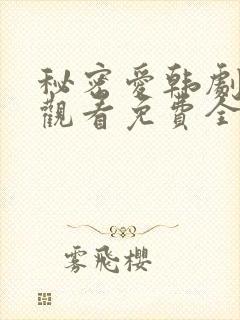 秘密愛韩劇
觀看免費全
雾飛櫻